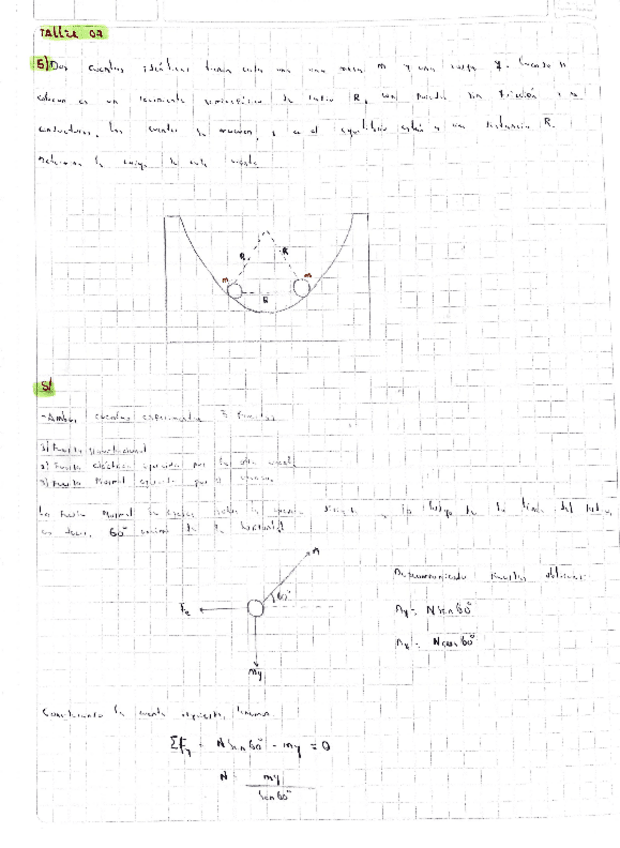 Taller 07
5) Dos cuentas idénticas tienen cada una una masa m y una carga q. Cuando se
colocan en un recipiente semiesférico de radio R, con paredes sin fricción y no
conductoras, las cuentas se mueven, y en el equilibrio están a una distancia R.
Determine la carga de cada cuenta
R R
m m
R
5/
-Ambas cuentas experimentan 3 fuerzas
1) Fuerza gravitacional
2) Fuerza eléctrica ejercida por la otra cuenta
3) Fuerza Normal ejercida por el
La Fuerza Normal se ejerce sobre la cuenta a lo largo de la línea del radio,
es decir, 60° encima de la horizontal
n
60°
Fe
mg
Descomponiendo fuerzas obtenemos
ny = N sen 60°
nx = N cos 60°
Considerando la cuenta izquierda, tenemos
ΣFy = N sen 60° - mg = 0
N = mg / sen 60°